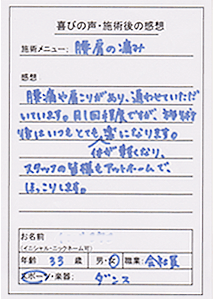 喜びの声・施術後の感想
施術メニュー: 腰肩の痛み
感想
腰痛や肩こりがあり、通わせていただ
いています。月1回程度ですが、施術
後はいつもとても楽になります。
体が軽くなり、
スタッフの皆様もアットホームで、
ほっこりします。
お名前
(イニシャル・ニックネーム可)
年齢 33 歳 男・女 職業: 会社員
スポーツ・楽器: ダンス